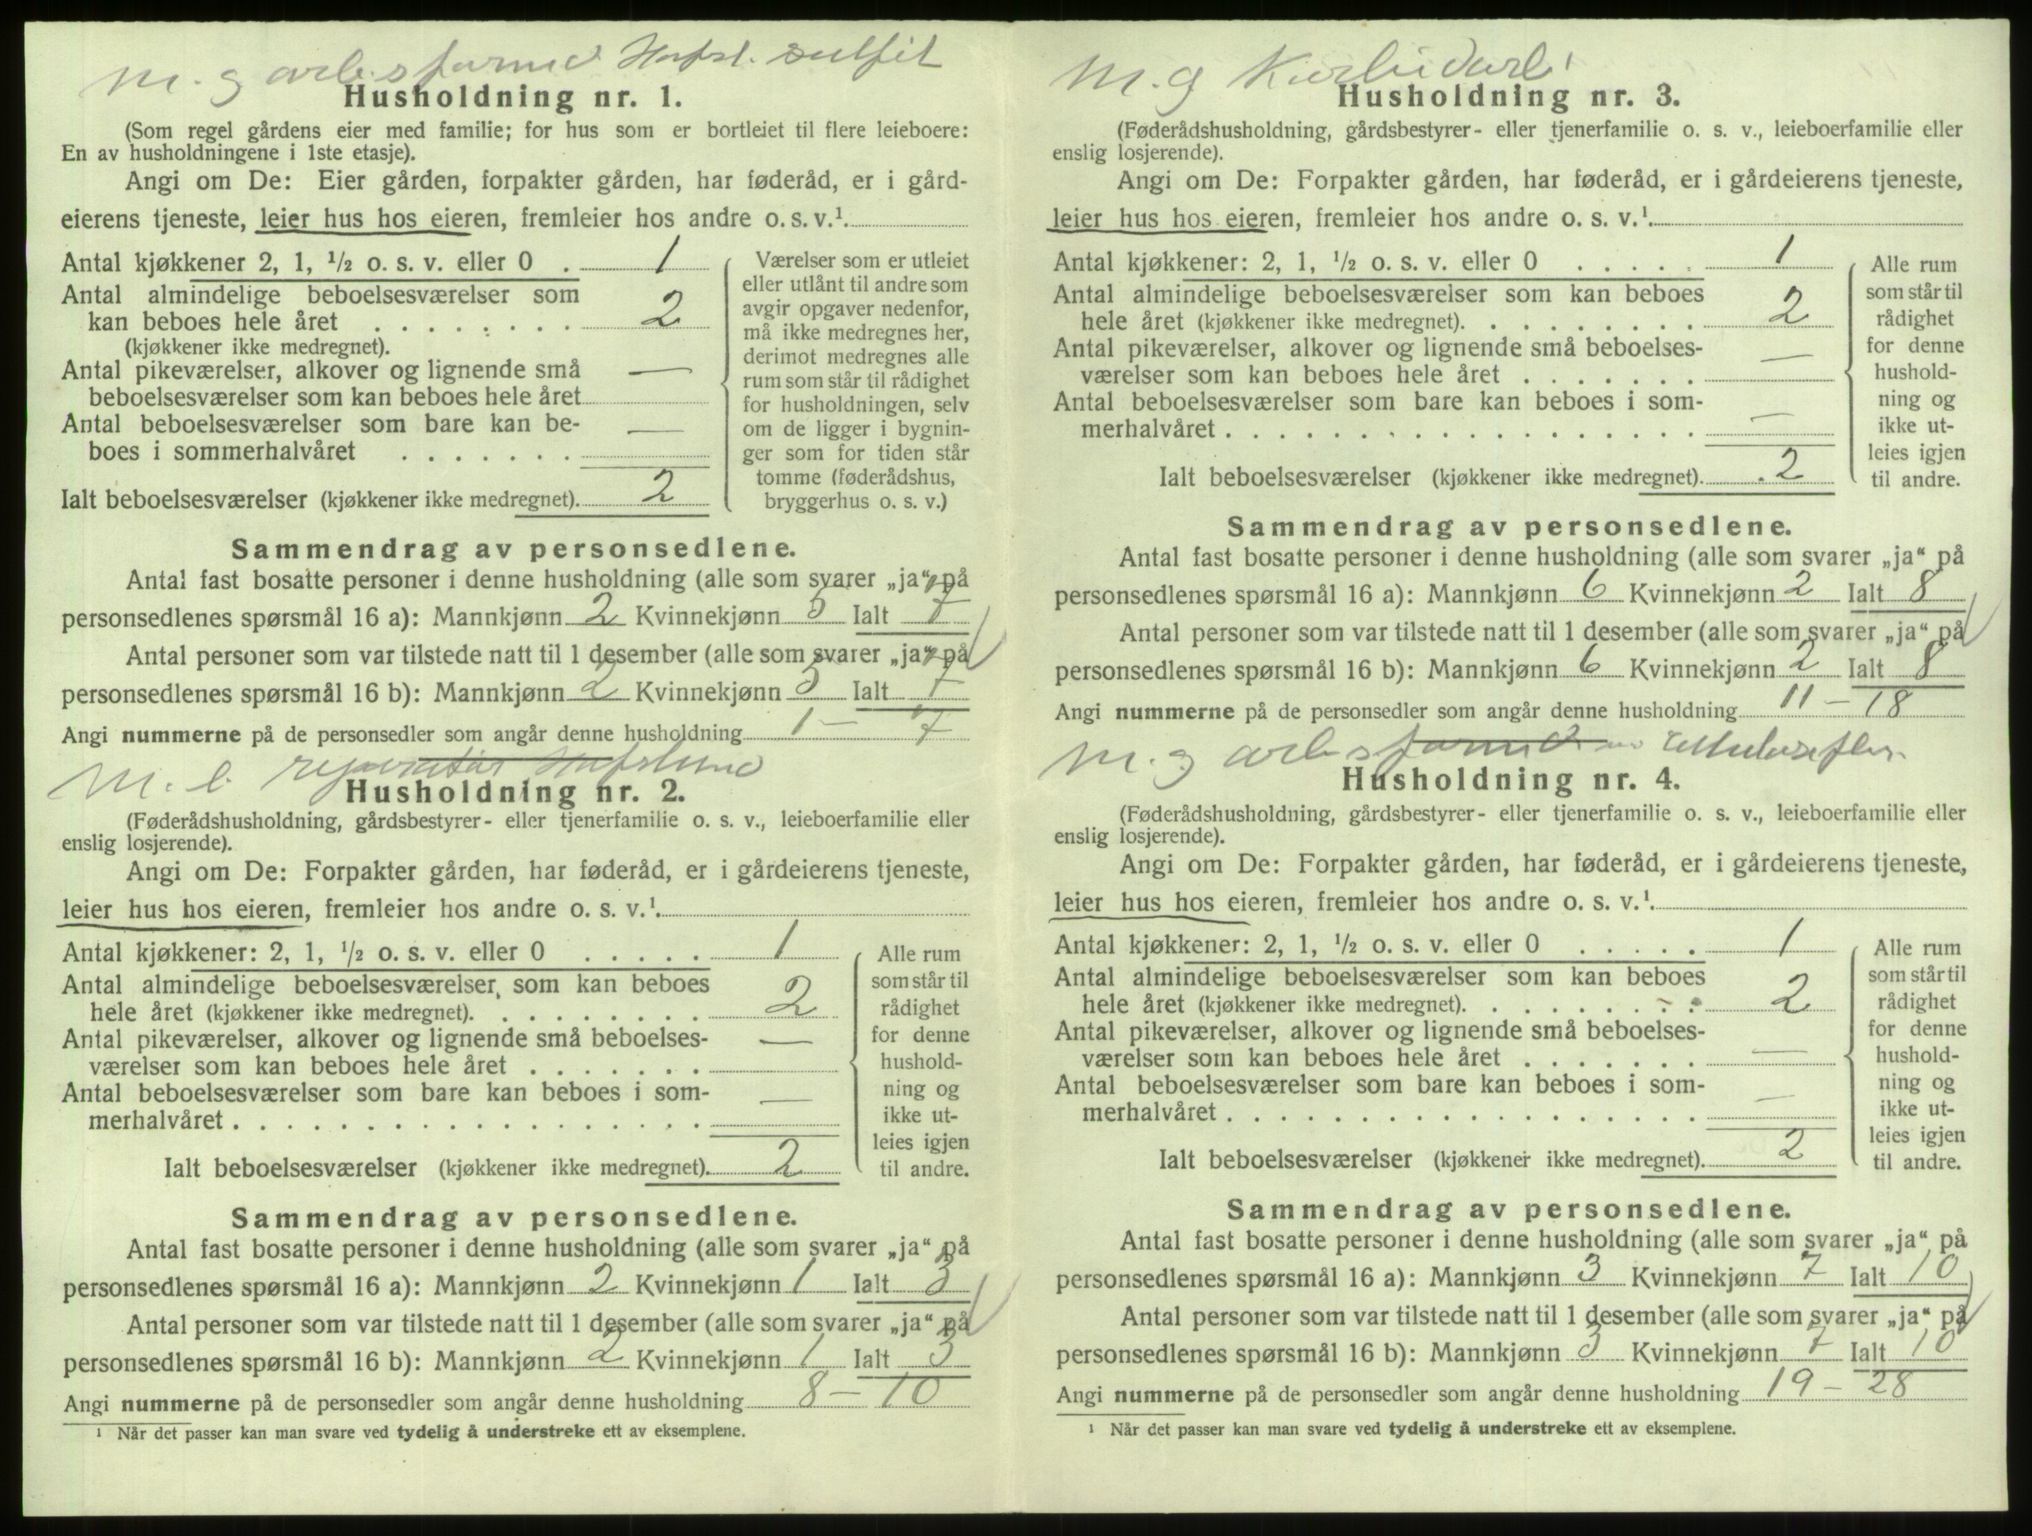 M. g arb.sformd Hafsl. sulfit
Husholdning nr. 1.
(Som regel gårdens eier med familie; for hus som er bortleiet til flere leieboere:
En av husholdningene i 1ste etasje).
Angi om De: Eier gården, forpakter gården, har føderåd, er i gård-
eierens tjeneste, leier hus hos eieren, fremleier hos andre o. s. v.¹
Antal kjøkkener 2, 1, ½ o. s. v. eller 0 . 1
Antal almindelige beboelsesværelser som
kan beboes hele året . . . . . . . . 2
(kjøkkener ikke medregnet).
Antal pikeværelser, alkover og lignende små —
beboelsesværelser som kan beboes hele året
Antal beboelsesværelser som bare kan be- —
boes i sommerhalvåret . . . . . . .
Ialt beboelsesværelser (kjøkkener ikke medregnet). 2
Værelser som er utleiet
eller utlånt til andre som
avgir opgaver nedenfor,
må ikke medregnes her,
derimot medregnes alle
rum som står til rådighet
for husholdningen, selv
om de ligger i bygnin-
ger som for tiden står
tomme (føderådshus,
bryggerhus o. s. v.)
Sammendrag av personsedlene.
Antal fast bosatte personer i denne husholdning (alle som svarer „ja“ på
personsedlenes spørsmål 16 a): Mannkjønn 2 Kvinnekjønn 5 Ialt 7
Antal personer som var tilstede natt til 1 desember (alle som svarer „ja“ på
personsedlenes spørsmål 16 b): Mannkjønn 2 Kvinnekjønn 5 Ialt 7
Angi nummerne på de personsedler som angår denne husholdning 1 — 7
M. b. reparatør Hafslund
Husholdning nr. 2.
(Føderådshusholdning, gårdsbestyrer- eller tjenerfamilie o. s. v., leieboerfamilie eller
enslig losjerende).
Angi om De: Forpakter gården, har føderåd, er i gårdeierens tjeneste,
leier hus hos eieren, fremleier hos andre o. s. v.¹
Antal kjøkkener: 2, 1, ½ o. s. v. eller 0 . . . . . 1
Antal almindelige beboelsesværelser som kan beboes
hele året (kjøkkener ikke medregnet). . . . . . . . . 2
Antal pikeværelser, alkover og lignende små beboelses- —
værelser som kan beboes hele året . . . . . . .
Antal beboelsesværelser som bare kan beboes i som- —
merhalvåret . . . . . . . . . . . . . . . . . .
Ialt beboelsesværelser (kjøkkener ikke medregnet). 2
Alle rum
som står til
rådighet
for denne
hushold-
ning og
ikke ut-
leies igjen
til andre.
Sammendrag av personsedlene.
Antal fast bosatte personer i denne husholdning (alle som svarer „ja“ på
personsedlenes spørsmål 16 a): Mannkjønn 2 Kvinnekjønn 1 Ialt 3
Antal personer som var tilstede natt til 1 desember (alle som svarer „ja“ på
personsedlenes spørsmål 16 b): Mannkjønn 2 Kvinnekjønn 1 Ialt 3
Angi nummerne på de personsedler som angår denne husholdning 8 — 10
¹ Når det passer kan man svare ved tydelig å understreke ett av eksemplene.
M. g Karbidarb.
Husholdning nr. 3.
(Føderådshusholdning, gårdsbestyrer- eller tjenerfamilie o. s. v., leieboerfamilie eller
enslig losjerende).
Angi om De: Forpakter gården, har føderåd, er i gårdeierens tjeneste,
leier hus hos eieren, fremleier hos andre o. s. v.¹
Antal kjøkkener: 2, 1, ½ o. s. v. eller 0 . . . . . 1
Antal almindelige beboelsesværelser som kan beboes
hele året (kjøkkener ikke medregnet). . . . . . . . . 2
Antal pikeværelser, alkover og lignende små beboelses- —
værelser som kan beboes hele året . . . . . . .
Antal beboelsesværelser som bare kan beboes i som- —
merhalvåret . . . . . . . . . . . . . . . . . .
Ialt beboelsesværelser (kjøkkener ikke medregnet). 2
Alle rum
som står til
rådighet
for denne
hushold-
ning og
ikke ut-
leies igjen
til andre.
Sammendrag av personsedlene.
Antal fast bosatte personer i denne husholdning (alle som svarer „ja“ på
personsedlenes spørsmål 16 a): Mannkjønn 6 Kvinnekjønn 2 Ialt 8
Antal personer som var tilstede natt til 1 desember (alle som svarer „ja“ på
personsedlenes spørsmål 16 b): Mannkjønn 6 Kvinnekjønn 2 Ialt 8
Angi nummerne på de personsedler som angår denne husholdning 11 — 18
M. g arb.sformd
Husholdning nr. 4.
(Føderådshusholdning, gårdsbestyrer- eller tjenerfamilie o. s. v., leieboerfamilie eller
enslig losjerende).
Angi om De: Forpakter gården, har føderåd, er i gårdeierens tjeneste,
leier hus hos eieren, fremleier hos andre o. s. v.¹
Antal kjøkkener: 2, 1, ½ o. s. v. eller 0 . . . . . 1
Antal almindelige beboelsesværelser som kan beboes
hele året (kjøkkener ikke medregnet). . . . . . . . . 2
Antal pikeværelser, alkover og lignende små beboelses- —
værelser som kan beboes hele året . . . . . . .
Antal beboelsesværelser som bare kan beboes i som- —
merhalvåret . . . . . . . . . . . . . . . . . .
Ialt beboelsesværelser (kjøkkener ikke medregnet). 2
Alle rum
som står til
rådighet
for denne
hushold-
ning og
ikke ut-
leies igjen
til andre.
Sammendrag av personsedlene.
Antal fast bosatte personer i denne husholdning (alle som svarer „ja“ på
personsedlenes spørsmål 16 a): Mannkjønn 3 Kvinnekjønn 7 Ialt 10
Antal personer som var tilstede natt til 1 desember (alle som svarer „ja“ på
personsedlenes spørsmål 16 b): Mannkjønn 3 Kvinnekjønn 7 Ialt 10
Angi nummerne på de personsedler som angår denne husholdning 19 — 28
¹ Når det passer kan man svare ved tydelig å understreke ett av eksemplene.